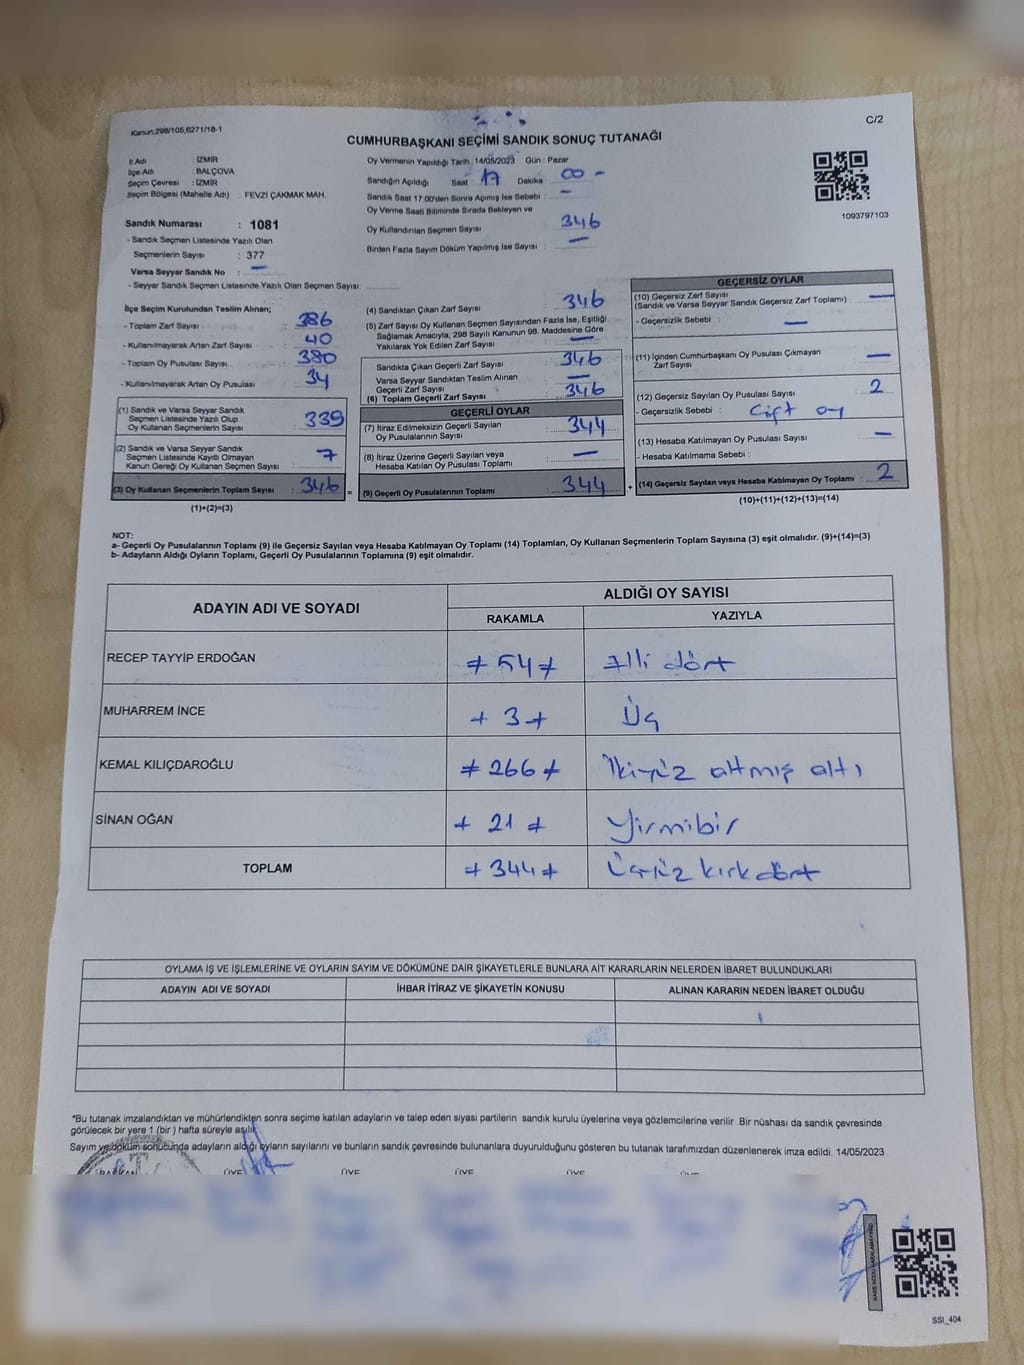 Kanun:298/105,6271/18-1
C/2
CUMHURBAŞKANI SEÇİMİ SANDIK SONUÇ TUTANAĞI
İl Adı : İZMİR
İlçe Adı : BALÇOVA
Seçim Çevresi : İZMİR
Seçim Bölgesi (Mahalle Adı) : FEVZİ ÇAKMAK MAH.
Oy Vermenin Yapıldığı Tarih :14/05/2023 Gün : Pazar
Sandığın Açıldığı Saat 17 Dakika 00 -
Sandık Saat 17.00'den Sonra Açımış İse Sebebi : -
Oy Verme Saati Bitiminde Sırada Bekleyen ve
Oy Kullandırılan Seçmen Sayısı : 346
Birden Fazla Sayım Döküm Yapılmış İse Sayısı : -
1093797103
Sandık Numarası : 1081
- Sandık Seçmen Listesinde Yazılı Olan
Seçmenlerin Sayısı : 377
Varsa Seyyar Sandık No : -
- Seyyar Sandık Seçmen Listesinde Yazılı Olan Seçmen Sayısı:
İlçe Seçim Kurulundan Teslim Alınan;
- Toplam Zarf Sayısı : 386
- Kullanılmayarak Artan Zarf Sayısı : 40
- Toplam Oy Pusulası Sayısı : 380
- Kullanılmayarak Artan Oy Pusulası : 34
(1) Sandık ve Varsa Seyyar Sandık
Seçmen Listesinde Yazılı Olup
Oy Kullanan Seçmenlerin Sayısı : 339
(2) Sandık ve Varsa Seyyar Sandık
Seçmen Listesinde Kayıtlı Olmayan
Kanun Gereği Oy Kullanan Seçmen Sayısı : 7
(3) Oy Kullanan Seçmenlerin Toplam Sayısı : 346 =
(1)+(2)=(3)
(4) Sandıktan Çıkan Zarf Sayısı : 346
(5) Zarf Sayısı Oy Kullanan Seçmen Sayısından Fazla İse, Eşitliği
Sağlamak Amacıyla, 298 Sayılı Kanunun 98. Maddesine Göre
Yakılarak Yok Edilen Zarf Sayısı : -
Sandıkta Çıkan Geçerli Zarf Sayısı : 346
Varsa Seyyar Sandıktan Teslim Alınan
Geçerli Zarf Sayısı : -
(6) Toplam Geçerli Zarf Sayısı : 346
GEÇERLİ OYLAR
(7) İtiraz Edilmeksizin Geçerli Sayılan
Oy Pusulalarının Sayısı : 344
(8) İtiraz Üzerine Geçerli Sayılan veya
Hesaba Katılan Oy Pusulası Toplamı : -
(9) Geçerli Oy Pusulalarının Toplamı : 344 +
GEÇERSİZ OYLAR
(10) Geçersiz Zarf Sayısı : -
(Sandık ve Varsa Seyyar Sandık Geçersiz Zarf Toplamı)
- Geçersizlik Sebebi : -
(11) İçinden Cumhurbaşkanı Oy Pusulası Çıkmayan
Zarf Sayısı : -
(12) Geçersiz Sayılan Oy Pusulası Sayısı : 2
- Geçersizlik Sebebi : Çift oy
(13) Hesaba Katılmayan Oy Pusulası Sayısı : -
- Hesaba Katılmama Sebebi :
(14) Geçersiz Sayılan veya Hesaba Katılmayan Oy Toplamı : 2
(10)+(11)+(12)+(13)=(14)
NOT:
a- Geçerli Oy Pusulalarının Toplamı (9) ile Geçersiz Sayılan veya Hesaba Katılmayan Oy Toplamı (14) Toplamları, Oy Kullanan Seçmenlerin Toplam Sayısına (3) eşit olmalıdır. (9)+(14)=(3)
b- Adayların Aldığı Oyların Toplamı, Geçerli Oy Pusulalarının Toplamına (9) eşit olmalıdır.
ADAYIN ADI VE SOYADI
ALDIĞI OY SAYISI
RAKAMLA
YAZIYLA
RECEP TAYYİP ERDOĞAN ≠ 54 ≠ Elli dört
MUHARREM İNCE + 3 + Üç
KEMAL KILIÇDAROĞLU ≠ 266 ≠ İkiyüz altmış altı
SİNAN OĞAN + 21 ≠ Yirmibir
TOPLAM ≠ 344 ≠ Üçyüz kırkdört
OYLAMA İŞ VE İŞLEMLERİNE VE OYLARIN SAYIM VE DÖKÜMÜNE DAİR ŞİKAYETLERLE BUNLARA AİT KARARLARIN NELERDEN İBARET BULUNDUKLARI
ADAYIN ADI VE SOYADI
İHBAR İTİRAZ VE ŞİKAYETİN KONUSU
ALINAN KARARIN NEDEN İBARET OLDUĞU
*Bu tutanak imzalandıktan ve mühürlendikten sonra seçime katılan adayların ve talep eden siyasi partilerin sandık kurulu üyelerine veya gözlemcilerine verilir .Bir nüshası da sandık çevresinde
görülecek bir yere 1 (bir ) hafta süreyle asılır.
Sayım ve döküm sonucunda adayların aldığı oyların sayılarını ve bunların sandık çevresinde bulunanlara duyurulduğunu gösteren bu tutanak tarafımızdan düzenlenerek imza edildi. 14/05/2023
BAŞKAN ÜYE ÜYE ÜYE ÜYE ÜYE
SSI_404